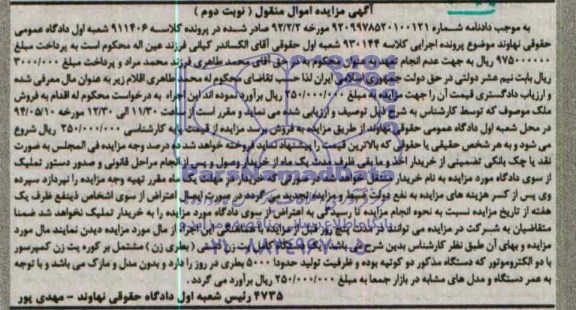 آگهی مزایده اموال منقول ( نوبت دوم )
به موجب دادنامه شماره ۹۲۰۹۹۷۸۵۲۰۱۰۰۱۲۱ مورخه ۹۲/۲/۲ صادر شده در پرونده کلاسه ۹۱۱۴۰۶ شعبه اول دادگاه عمومی
حقوقی نهاوند موضوع پرونده اجرایی کلاسه ۹۳۰۱۴۴ شعبه اول حقوقی آقای الکساندر کیانی فرزند عین اله محکوم است به پرداخت مبلغ
۹۷۵۰۰۰۰۰۰ ریال به جهت عدم انجام تعهد به عنوان محکوم به در حق آقای محمد طاهری فرزند محمد مراد و پرداخت مبلغ ۳۰۰۰/۰۰۰
ریال بابت نیم عشر دولتی در حق دولت جمهوری اسلامی ایران لذا حسب تقاضای محکوم له محمد طاهری اقلام زیر به عنوان مال معرفی شده
و ارزیاب دادگستری قیمت آن را جهت مزایده به مبلغ ۲۵۰/۰۰۰/۰۰۰ ریال برآورد نموده اند این اجراء به درخواست محکوم له اقدام به فروش
ملک موصوف که توسط کارشناس به شرح ذیل توصیف و ارزیابی شده می نماید و مقرر است از ساعت ۱۱/۳۰ الی ۱۲/۳۰ مورخه ۹۴/۰۵/۱۰
در محل شعبه اول دادگاه عمومی حقوقی نهاوند از طریق مزایده به فروش برسد مزایده از قیمت پایه کارشناسی ۲۵۰/۰۰۰/۰۰۰ ریال شروع
می شود و به هر شخص حقیقی یا حقوقی که بالاترین قیمت را پیشنهاد نماید فروخته خواهد شد ده درصد وجه مزایده فی المجلس به صورت
نقد یا چک بانکی تضمینی از خریدار اخذ و مابقی ظرف مدت یک ماه از خریدار وصول و پس از انجام مراحل قانونی و صدور دستور تملیک
از سوی دادگاه مورد مزایده به نام خریدار در صورتی که خریدار در مهلت یک ماه مقرر بقیه وجه مزایده را نپردازد سپرده
وی پس از کسر هزینه های مزایده به نفع دولت ضبط و مزایده تجدید می گردد در صورت ایصال اعتراض از سوی اشخاص ذینفع ظرف یک
هفته از تاریخ مزایده نسبت به نحوه انجام مزایده تا رسیدگی به اعتراض از سوی دادگاه مورد مزایده را به خریدار تملیک نخواهد شد ضمنا
متقاضیان به شرکت در مزایده می توانند از مال مورد مزایده دیدن نمایند مال مورد
مزایده و بهای آن طبق نظر کارشناس بدین شرح می باشد: یک دستگاه کامل ( بطری زن ) مشتمل بر کوره پت زن کمپرسور
با دو الکتروموتور که دستگاه مذکور دو کوتیه بوده و ظرفیت تولید حدودا ۵۰۰۰ بطری در روز را دارد و بدون مدل و مارک می باشد و با توجه
به عمر دستگاه و مدل های مشابه در بازار جمعا به مبلغ ۲۵۰/۰۰۰/۰۰۰ ریال برآورد می گردد .
۴۷۳۵ رئیس شعبه اول دادگاه حقوقی نهاوند - مهدی پور
ParsNamadData
۰۲۱-۸۸۳۴۹۶۷۰-۵